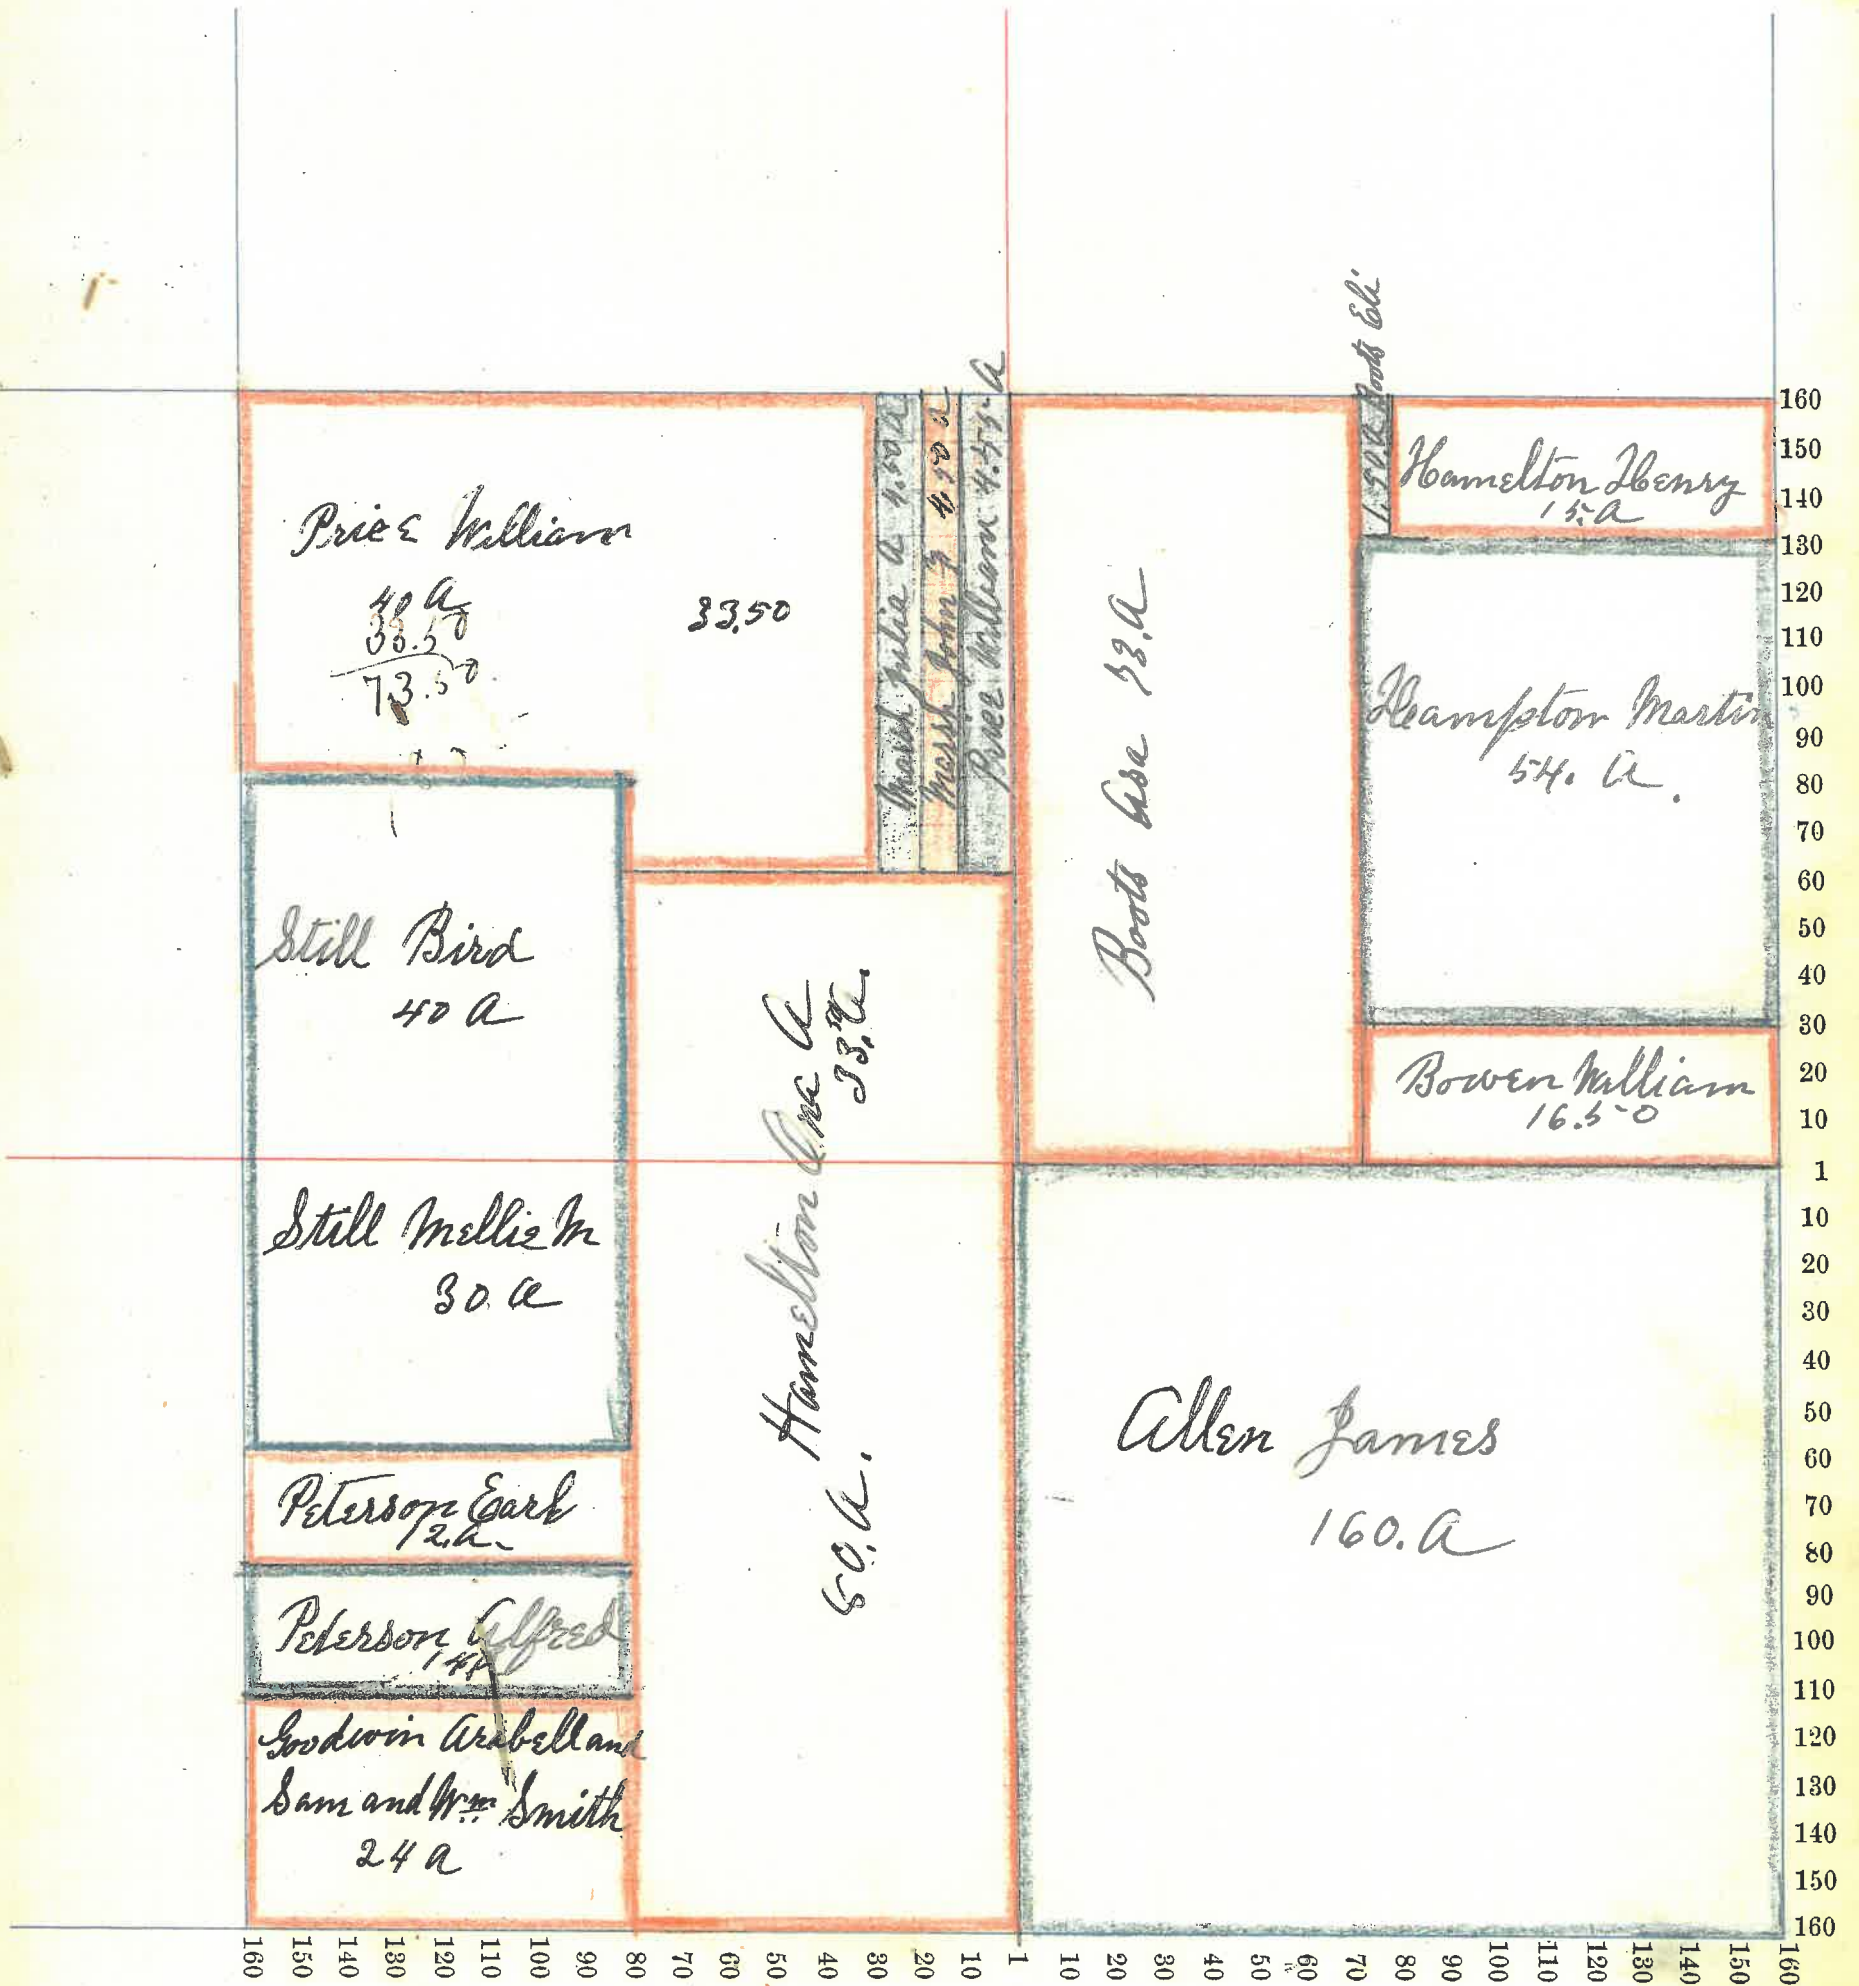 Price William
40 A
33.50
73.50
33.50
Marsh Julia A 4.50 A
Marsh John F 4.50 A
Price William 4.55 A
Boots Asa 73.A
1.50 A Boots Eli
Hamelton Henry
15. A
Heampton Martin
54. A.
Bowen William
16.50
Still Bird
40 A
Still Mellie M
30. A
Hamelton Ora A
33.50 A.
80. A.
Allen James
160. A
Peterson Earl
12. A.
Peterson Alfred
14 A
Goodwin Arabell and
Sam and Wm Smith
24 A
160
150
140
130
120
110
100
90
80
70
60
50
40
30
20
10
1
10
20
30
40
50
60
70
80
90
100
110
120
130
140
150
160
160 150 140 130 120 110 100 90 80 70 60 50 40 30 20 10 1 10 20 30 40 50 60 70 80 90 100 110 120 130 140 150 160